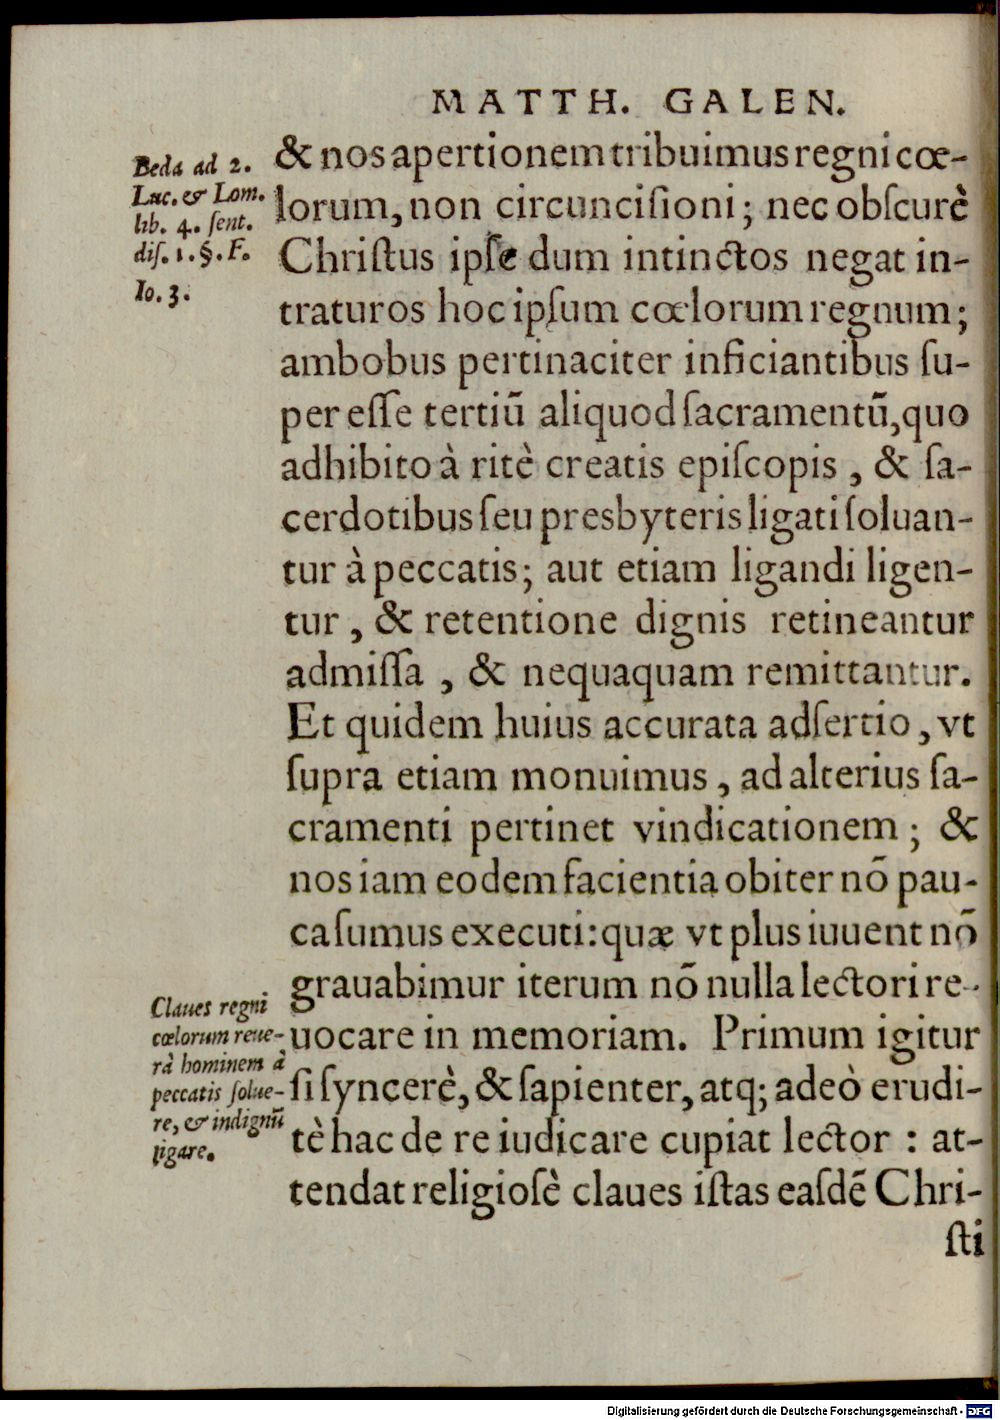 MATTH. GALEN.
Beda ad 2.
Luc. & Lom.
lib. 4. ſent.
diſ. 1. §. F.
Io. 3.
& nos apertionem tribuimus regni cœ-
lorum, non circunciſioni; nec obſcurè
Chriſtus ipſe dum intinctos negat in-
traturos hoc ipſum cœlorum regnum;
ambobus pertinaciter inficiantibus ſu-
per eſſe tertiũ aliquod ſacramentũ, quo
adhibito à ritè creatis epiſcopis, & ſa-
cerdotibus ſeu presbyteris ligati ſoluan-
tur à peccatis; aut etiam ligandi ligen-
tur, & retentione dignis retineantur
admiſſa, & nequaquam remittantur.
Et quidem huius accurata adſertio, vt
ſupra etiam monuimus, ad alterius ſa-
cramenti pertinet vindicationem; &
nos iam eodem facientia obiter nõ pau-
ca ſumus executi: quæ vt plus iuuent nõ
grauabimur iterum nõ nulla lectori re-
uocare in memoriam. Primum igitur
ſi ſyncerè, & ſapienter, atq; adeò erudi-
tè hac de re iudicare cupiat lector: at-
tendat religioſè claues iſtas eaſdẽ Chri-
Claues regni
cœlorum reue-
rà hominem à
peccatis ſolue-
re, & indignũ
ligare.
ſti
Digitalisierung gefördert durch die Deutsche Forschungsgemeinschaft - DFG